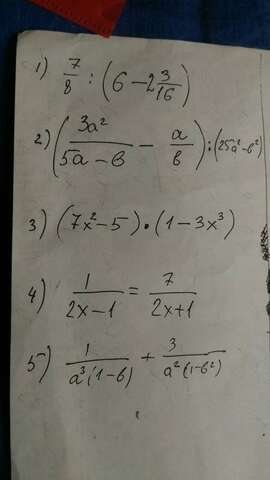 1) 7/8 : (6 - 2 3/16)
2) (3a²/(5a - b) - a/b) : (25a² - b²)
3) (7x² - 5) · (1 - 3x³)
4) 1/(2x - 1) = 7/(2x + 1)
5) 1/(a³(1 - b)) + 3/(a²(1 - b²))